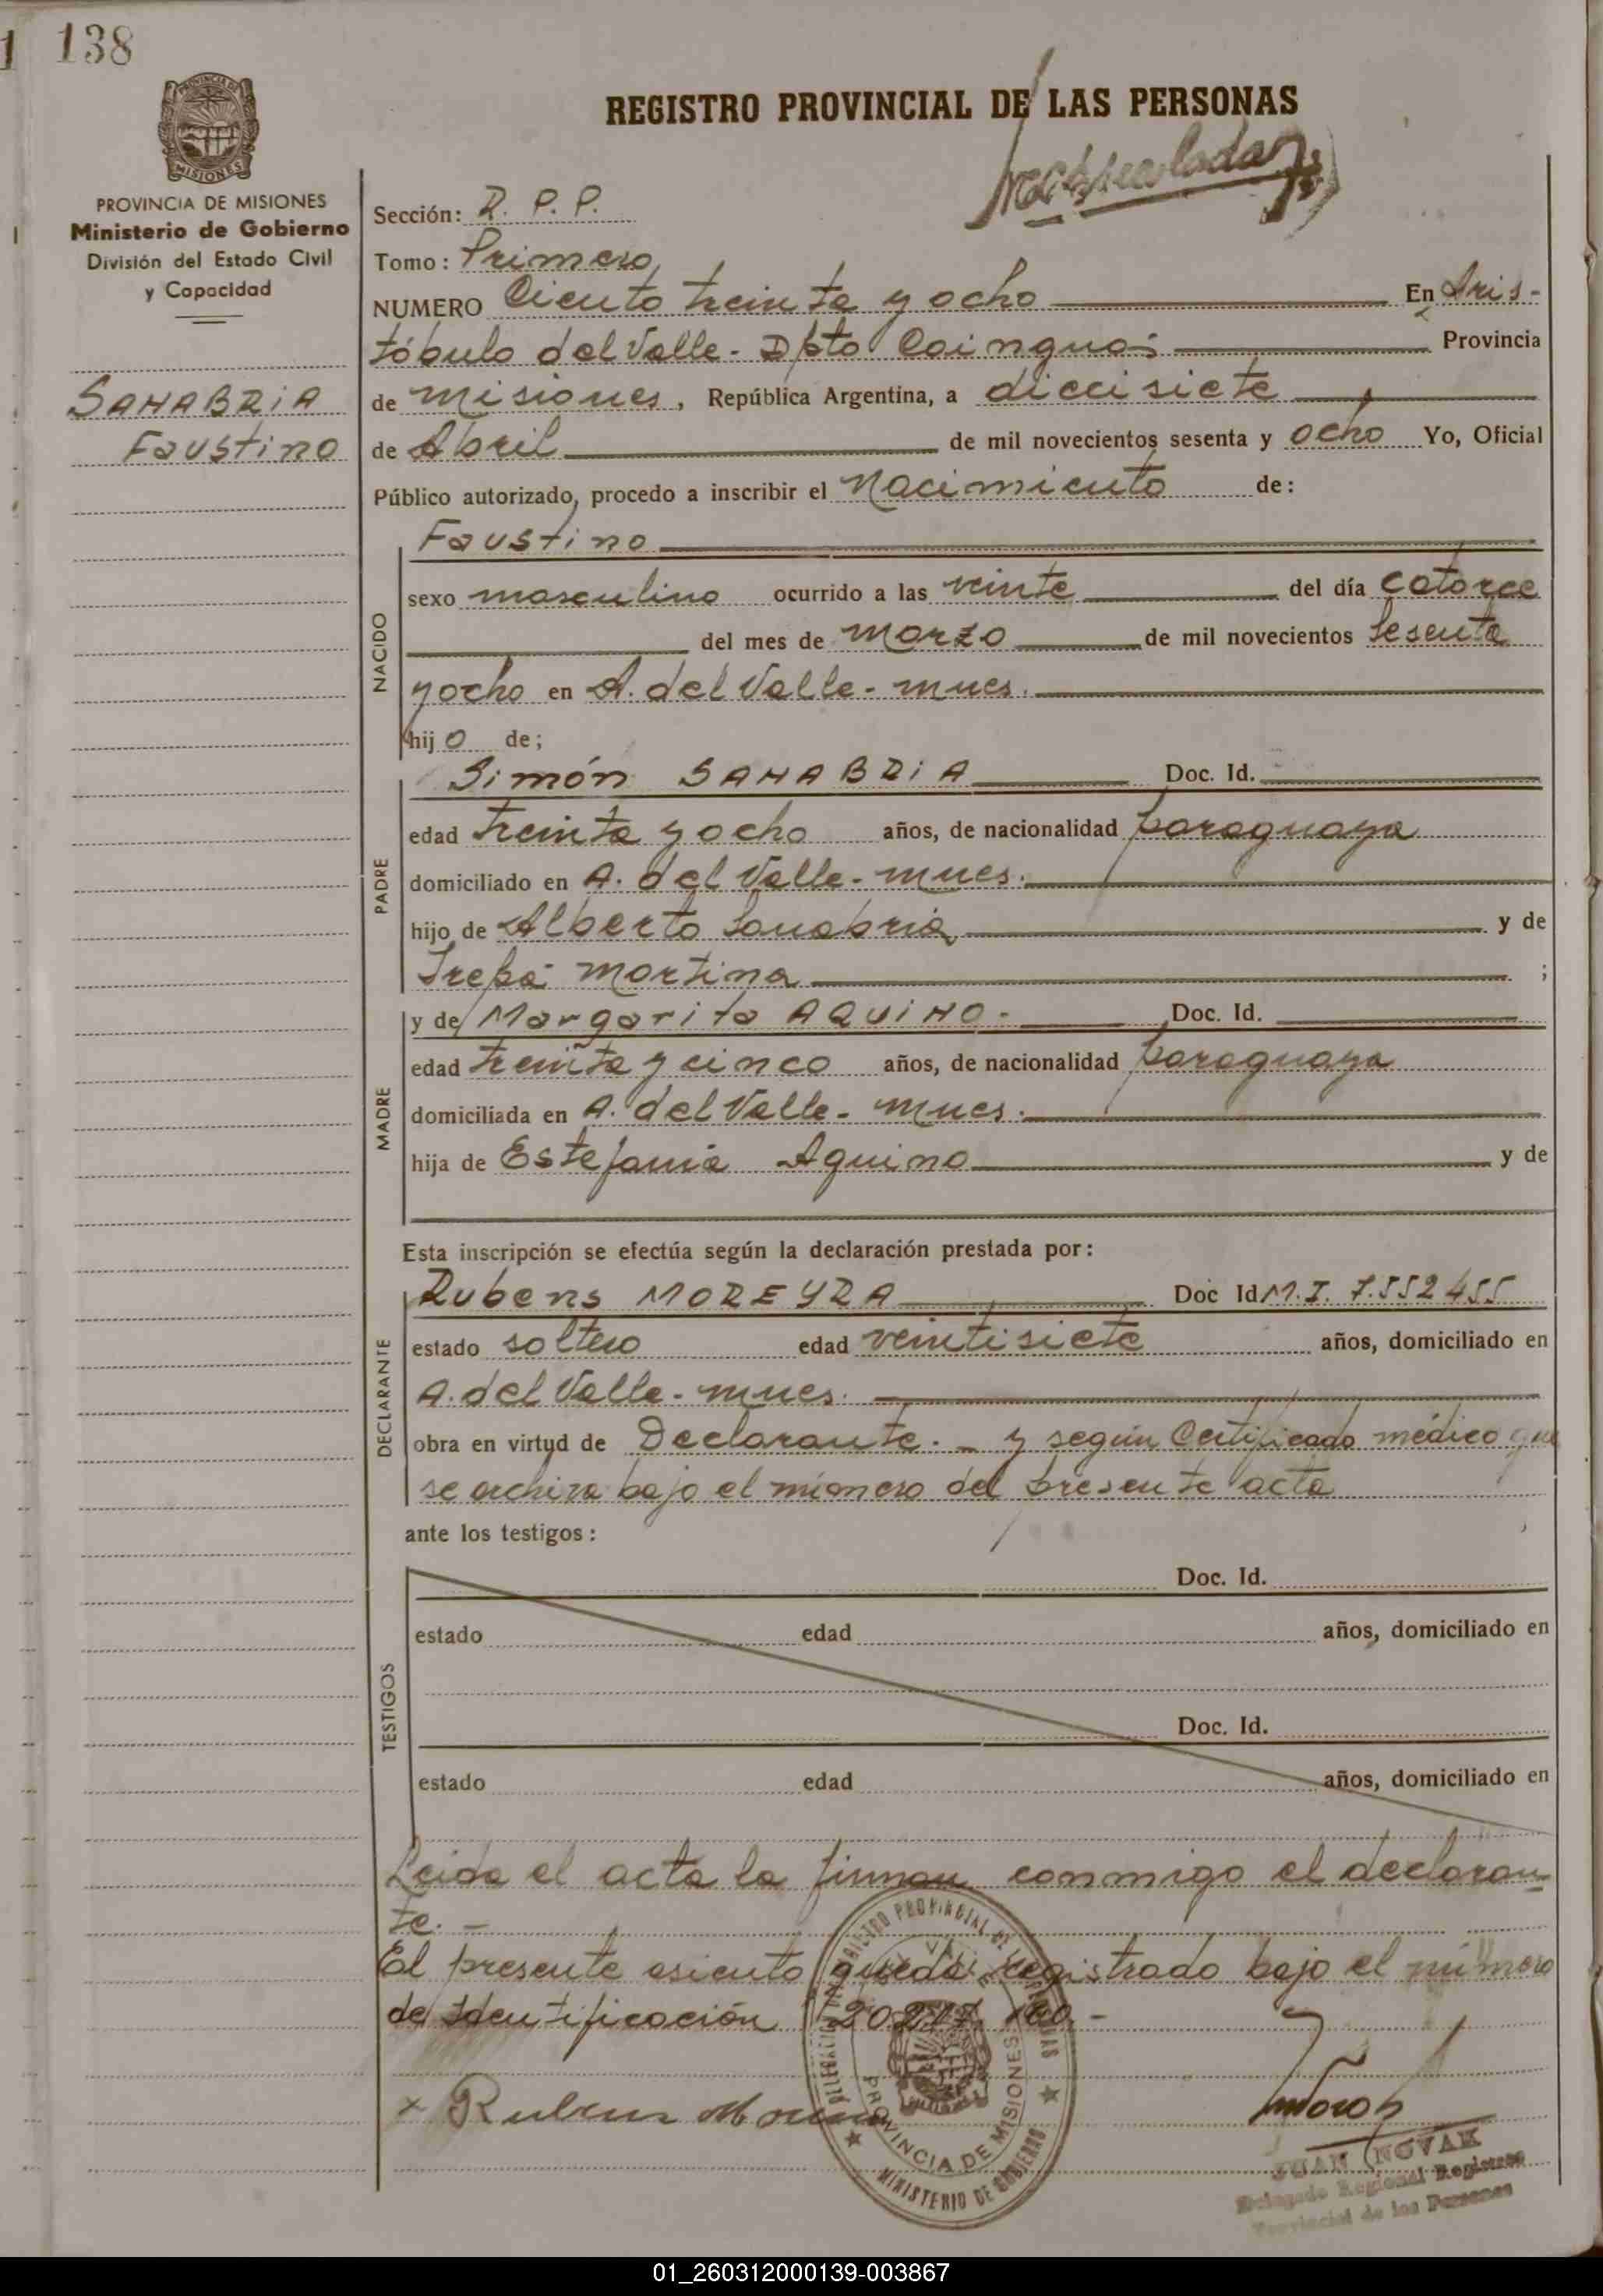 138
PROVINCIA DE MISIONES
Ministerio de Gobierno
División del Estado Civil
y Capacidad
SANABRIA
Faustino
REGISTRO PROVINCIAL DE LAS PERSONAS
Sección: R. P. P.
Tomo: Primero
NUMERO Ciento treinta y ocho En Aris-
tóbulo del Valle - Dpto Cainguás Provincia
de Misiones, República Argentina, a diecisiete
de Abril de mil novecientos sesenta y ocho Yo, Oficial
Público autorizado, procedo a inscribir el Nacimiento de:
NACIDO
Faustino
sexo masculino ocurrido a las veinte del día catorce
del mes de marzo de mil novecientos sesenta
y ocho en A. del Valle - mnes.
hijo de;
PADRE
Simón SANABRIA Doc. Id.
edad treinta y ocho años, de nacionalidad paraguaya
domiciliado en A. del Valle - mnes.
hijo de Alberto Sanabria y de
Martina ;
MADRE
y de Margarita AQUINO - Doc. Id.
edad treinta y cinco años, de nacionalidad paraguaya
domiciliada en A. del Valle - mnes.
hija de Estefania Aquino y de
Esta inscripción se efectúa según la declaración prestada por:
DECLARANTE
Rubens MOREYRA Doc Id M.I. 7.552455
estado soltero edad veintisiete años, domiciliado en
A. del Valle - mnes.
obra en virtud de Declarante. - y según Certificado médico que
se archiva bajo el número del presente acta
ante los testigos:
TESTIGOS
Doc. Id.
estado edad años, domiciliado en
Doc. Id.
estado edad años, domiciliado en
Leida el acta la firman conmigo el declaran-
te. -
El presente asiento queda registrado bajo el número
de Identificación
REGISTRO PROVINCIAL DE LAS PERSONAS
PROVINCIA DE MISIONES
MINISTERIO DE GOBIERNO
JUAN NOVAK
Delegado Regional Registro
Provincial de las Personas
01_260312000139-003867